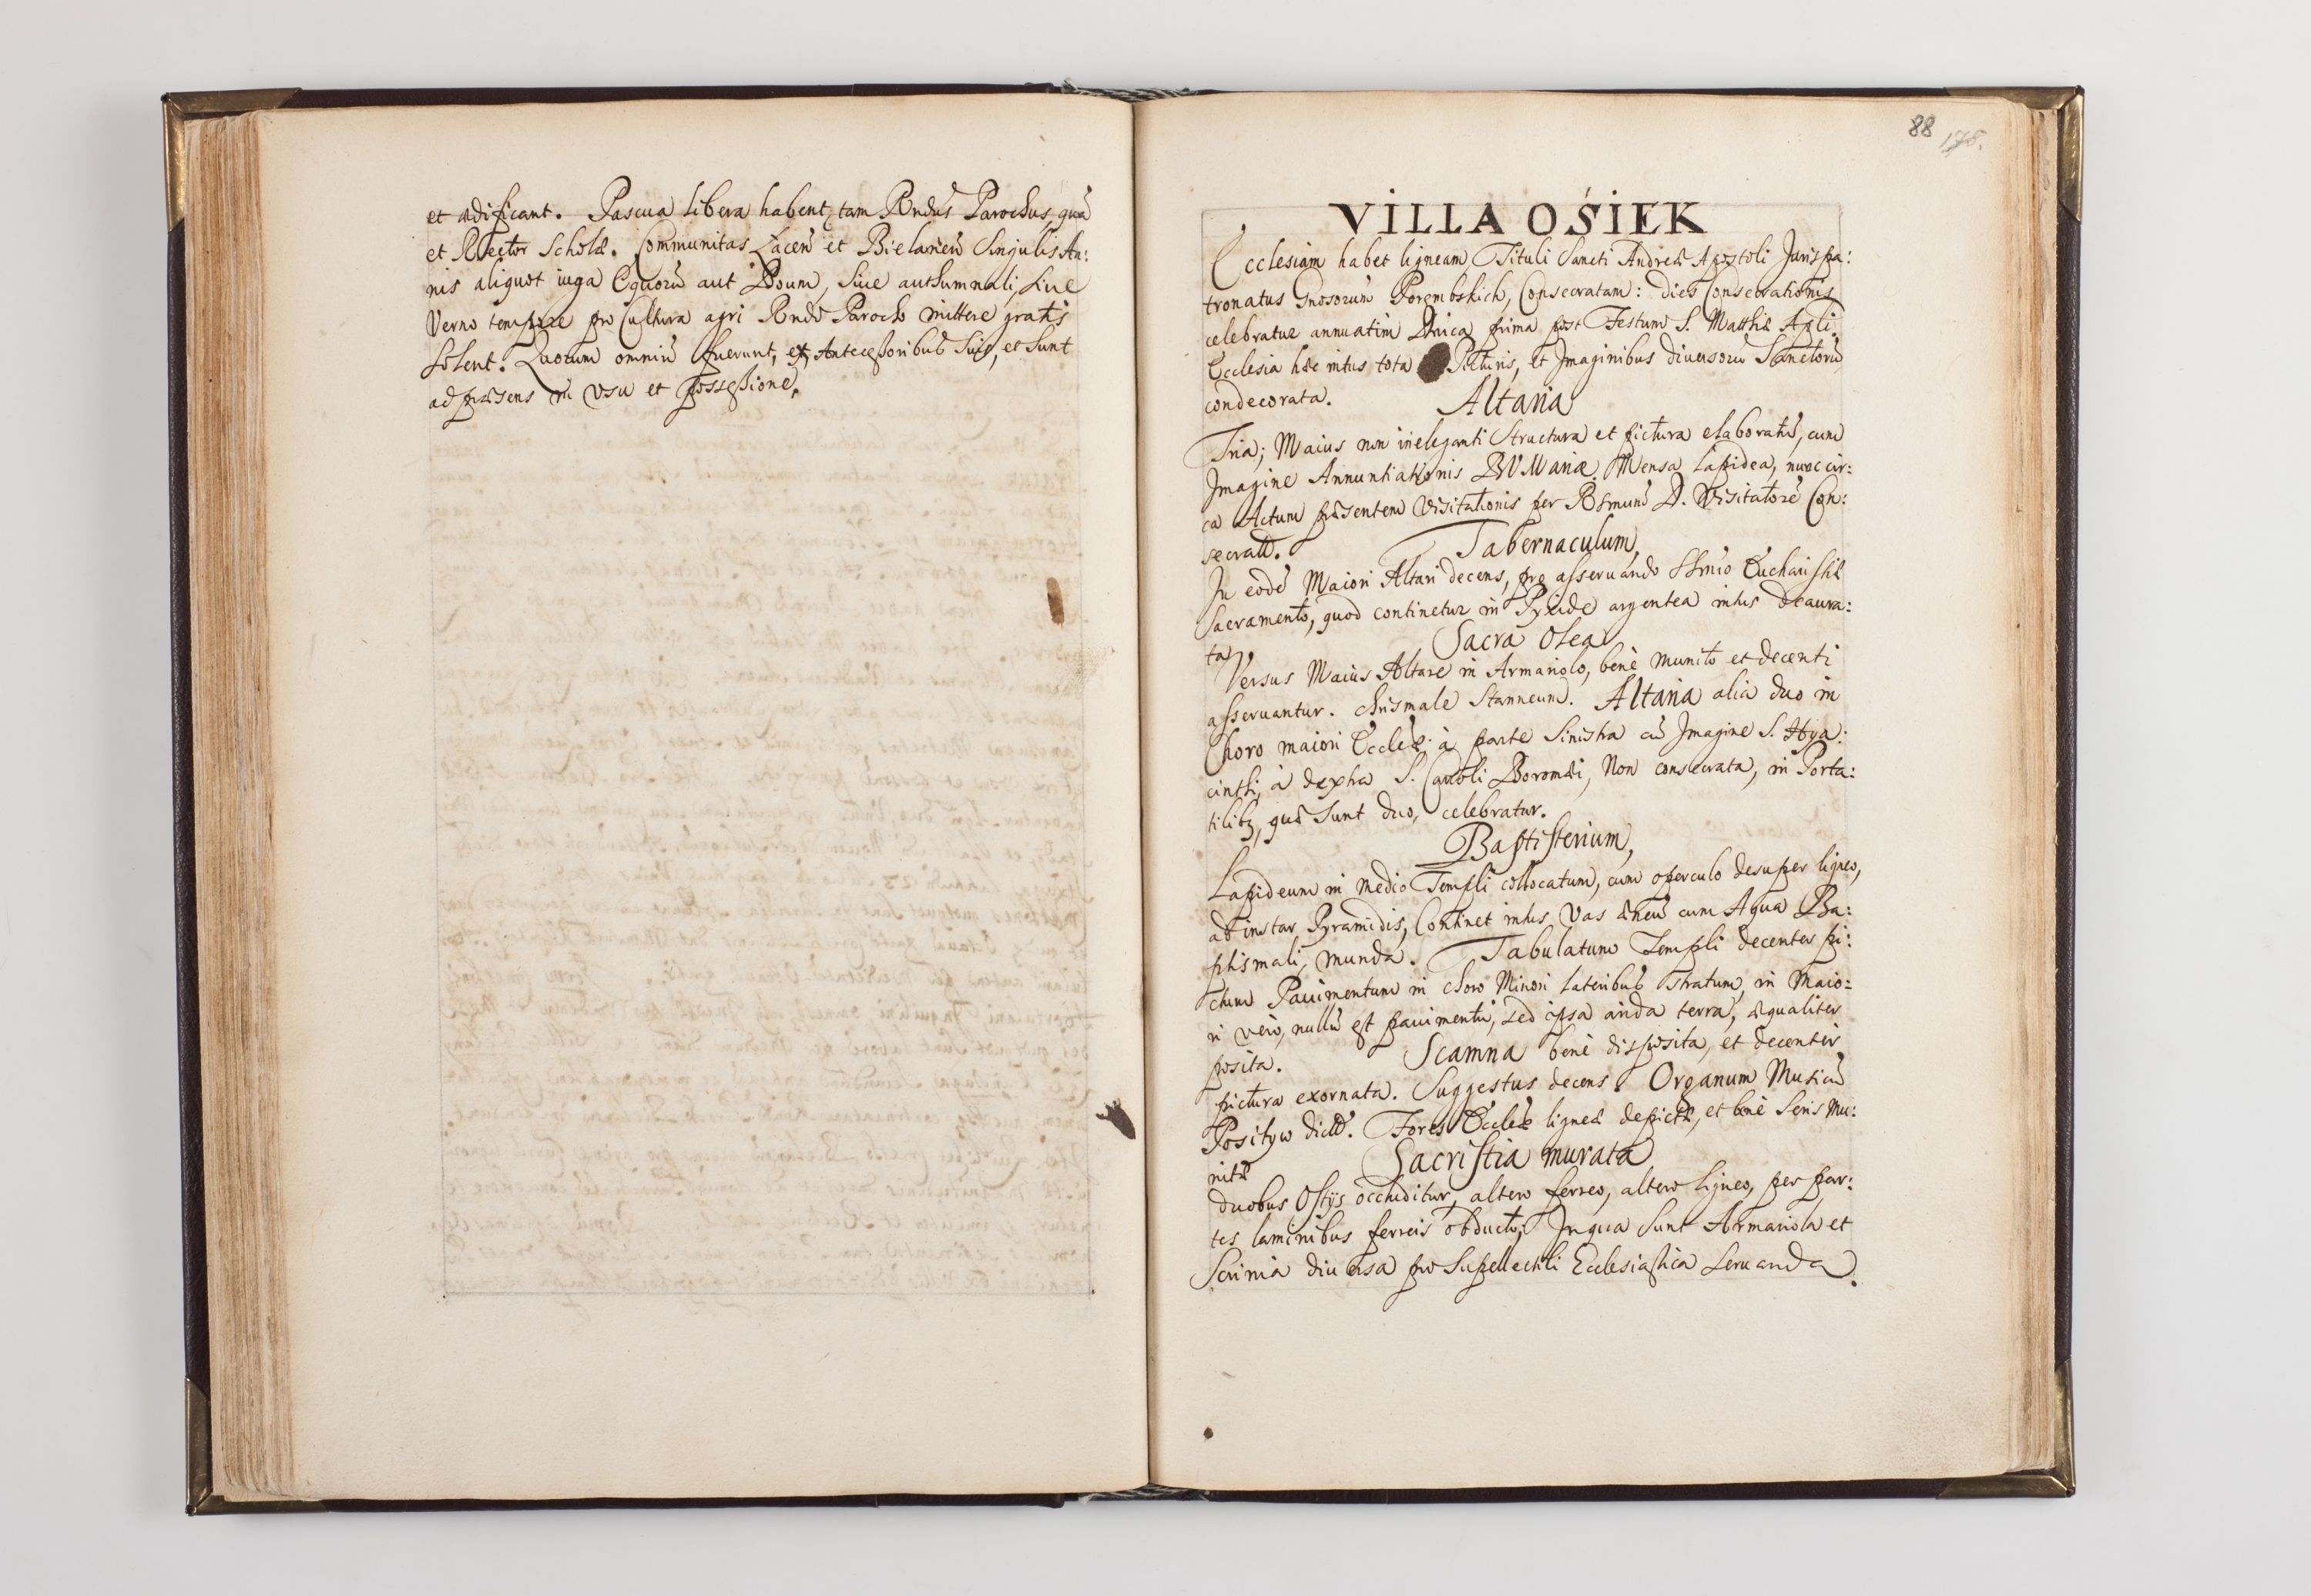 et ædificant. Pascua libera habent, tam Rndus Parochus, quã
et Rector Scholæ. Communitas Łacen̄ et Bielanen̄ Singulis An:
nis aliquot iuga Equorũ aut Boum, Siue authumnali, siue
Verno tempore pro Cultura agri Rndo Parocho mittere gratis
solent. Quorum omniũ fuerunt, et Antecessoribus suis, et sunt
ad præsens in usu et possessione.
88
178.
VILLA OŚIEK
Ecclesiam habet ligneam Tituli Sancti Andreæ Apostoli Jurispa:
tronatus Gnosorum Porembskich, Consecratam: dies Consecrationis
celebratur annuatim Dnica prima post Festum S. Matthiæ Apli.
Ecclesia hæc intus tota Picturis, et Imaginibus diuersorũ Sanctorũ
condecorata. Altaria
Tria; Maius non ineleganti Structura et pictura elaboratũ, cum
Imagine Annuntiationis BVMariæ. Mensa lapidea, nunc cir:
ca Actum præsentem Visitationis per Rsmum D. Visitatorẽ Con:
secrata. Tabernaculum,
In eodẽ Maiori Altari decens, pro asseruando SSmo Eucharistiæ
Sacramento, quod continetur in Pyxide argentea intus deaura:
ta. Sacra Olea
Versus Maius Altare in Armariolo, benè munito et decenti
asseruantur. Chrismale Stanneum. Altaria alia duo in
Choro maiori Eccleæ: à parte Sinistra cũ Imagine S. Hya:
cinthi, à dextra S. Caroli Boromæi, Non consecrata, in Porta:
tilibq, quæ sunt duo, celebratur.
Baptisterium,
Lapideum in medio Templi collocatum, cum operculo desuper ligneo,
ad instar Pyramidis, Continet intus Vas æneũ cum Aqua Ba:
ptismali, munda. Tabulatum Templi decenter pi:
ctum Pauimentum in choro Minori lateribus stratum, in Maio:
ri vero, nullũ est pauimentũ, sed ipsa arida terra, æqualiter
posita. Scamna benè disposita, et decenter
pictura exornata. Suggestus decens. Organum Musicũ
Posityw dictũ. Fores Eccleæ ligneæ depictæ, et benè Seris mu:
nitæ Sacristia murata
duobus Ostijs occluditur, altero ferreo, altero ligneo, per par:
tes laminibus ferreis obducto; In qua sunt Armariola et
Scrinia diuersa pro Supellectili Ecclesiastica seruanda.